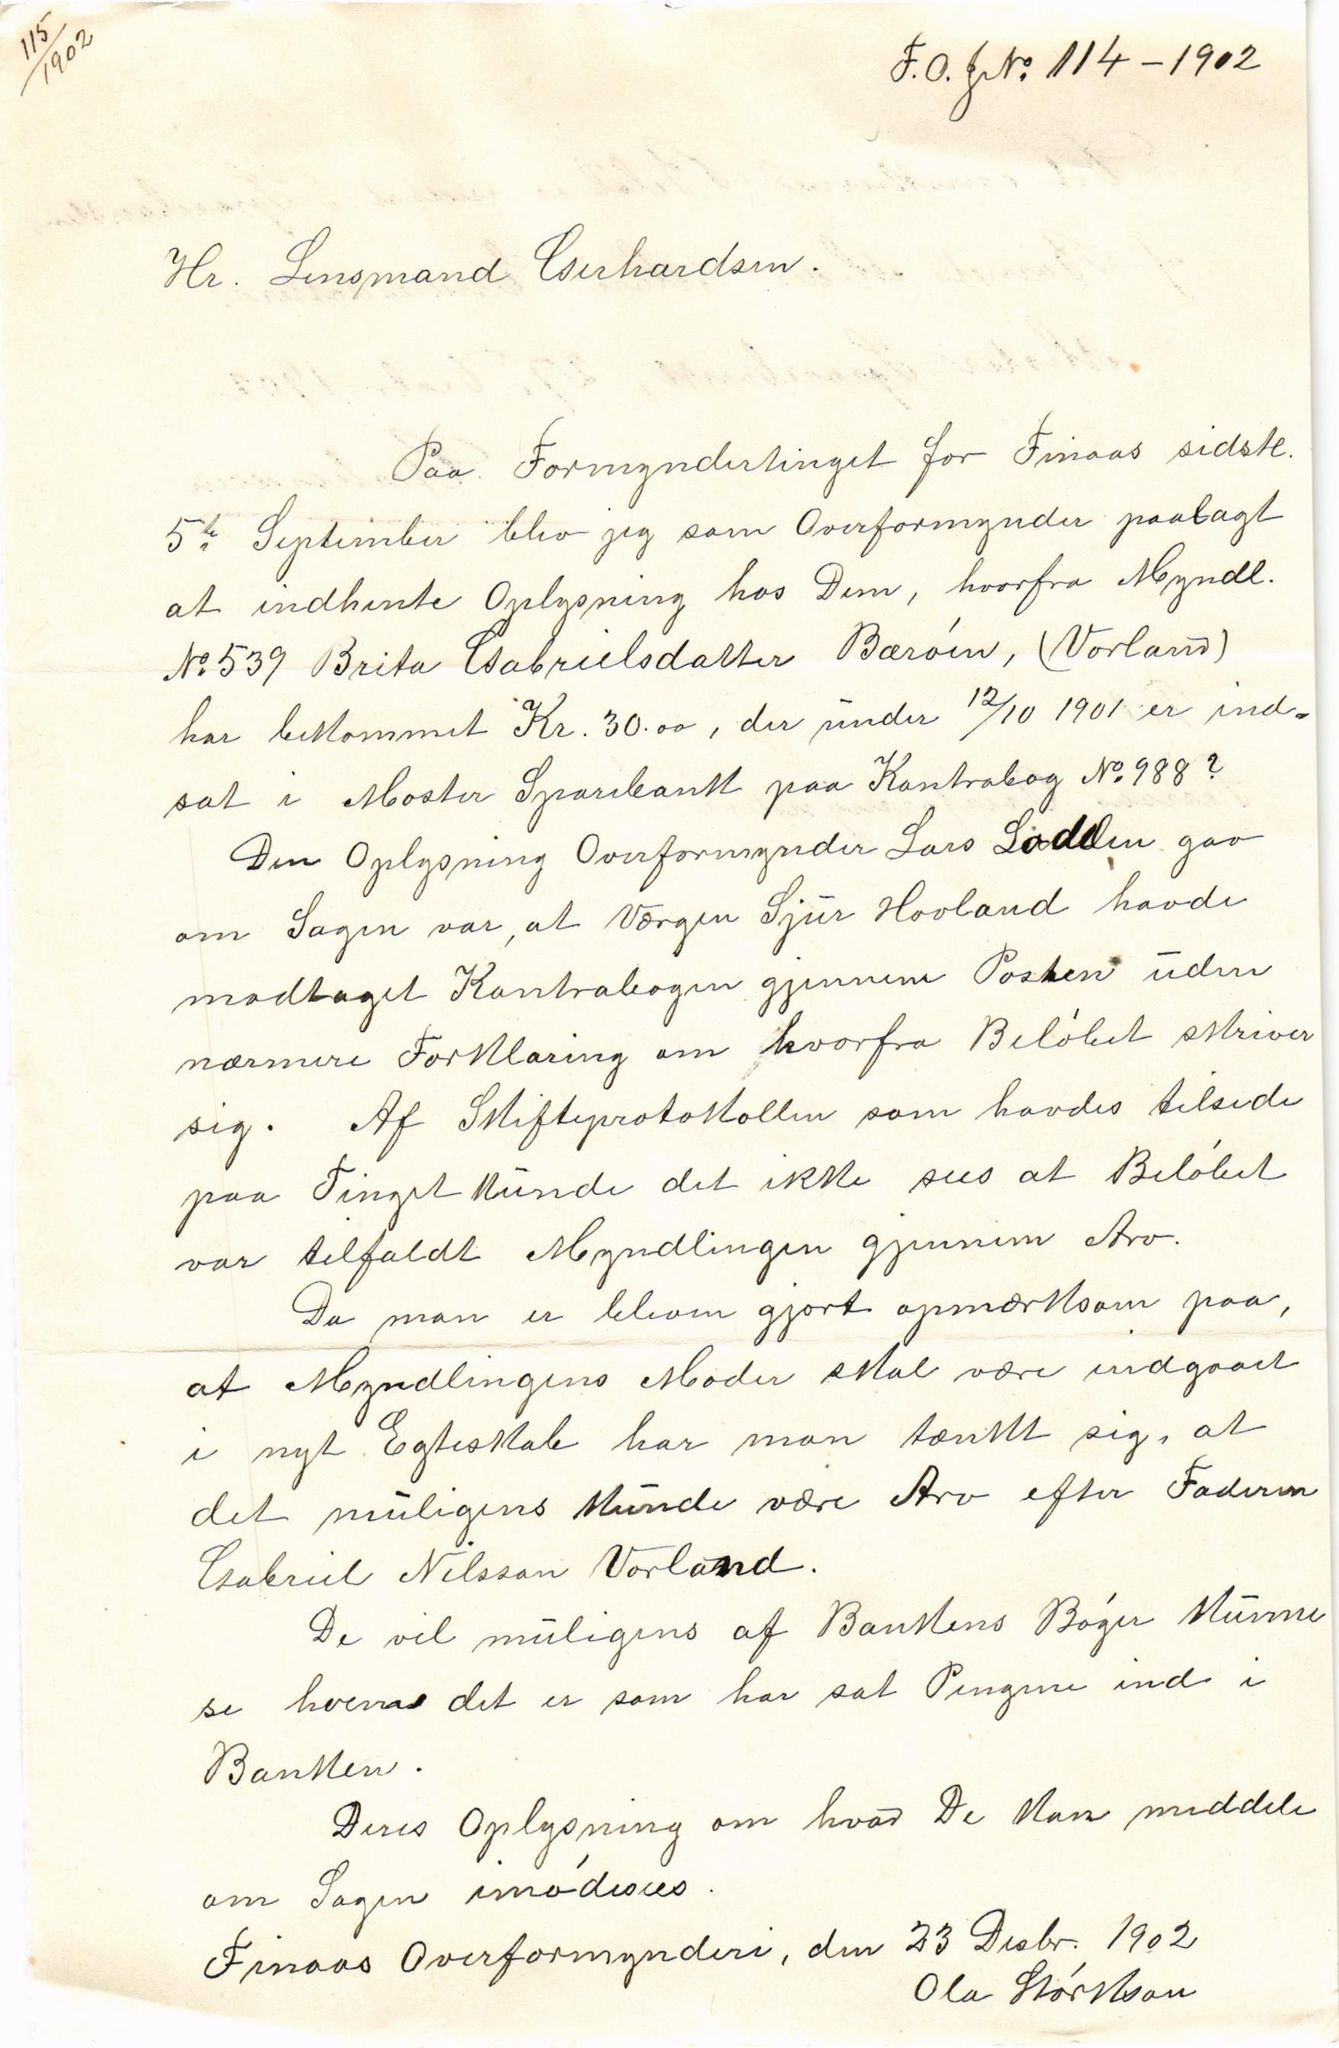 115/1902
F.O.J.No. 114 - 1902
Hr. Lensmand Gerhardsen.
Paa Formyndertinget for Finaas sidste.
5te September blev jeg som Overformynder paalagt
at indhente Oplysning hos Dem, hvorfra Myndl.
No. 539 Brita Gabrielsdatter Bærøen, (Vorland)
har bekommet Kr. 30.00, der under 12/10 1901 er ind-
sat i Moster Sparebank paa Kontrabog No. 988?
Den Oplysning Overformynder Lars Lodden gav
om Sagen var, at Værgen Sjur Hovland havde
modtaget Kontrabogen gjennem Posten uden
nærmere Forklaring om hvorfra Beløbet skriver
sig. Af Skifteprotokollen som havdes tilstede
paa Tinget kunde det ikke sees at Beløbet
var tilfaldt Myndlingen gjennem Arv.
Da man er bleven gjort opmærksom paa,
at Myndlingens Moder skal være indgaaet
i nyt Egteskab har man tænkt sig, at
det muligens kunde være Arv efter Faderen
Gabriel Nilsson Vorland.
De vil muligens af Bankens Bøger kunne
se hvem det er som har sat Pengene ind i
Banken.
Deres Oplysning om hvad De kan meddele
om Sagen imødesees.
Finaas Overformynderi, den 23 Desbr. 1902
Ola Størkson